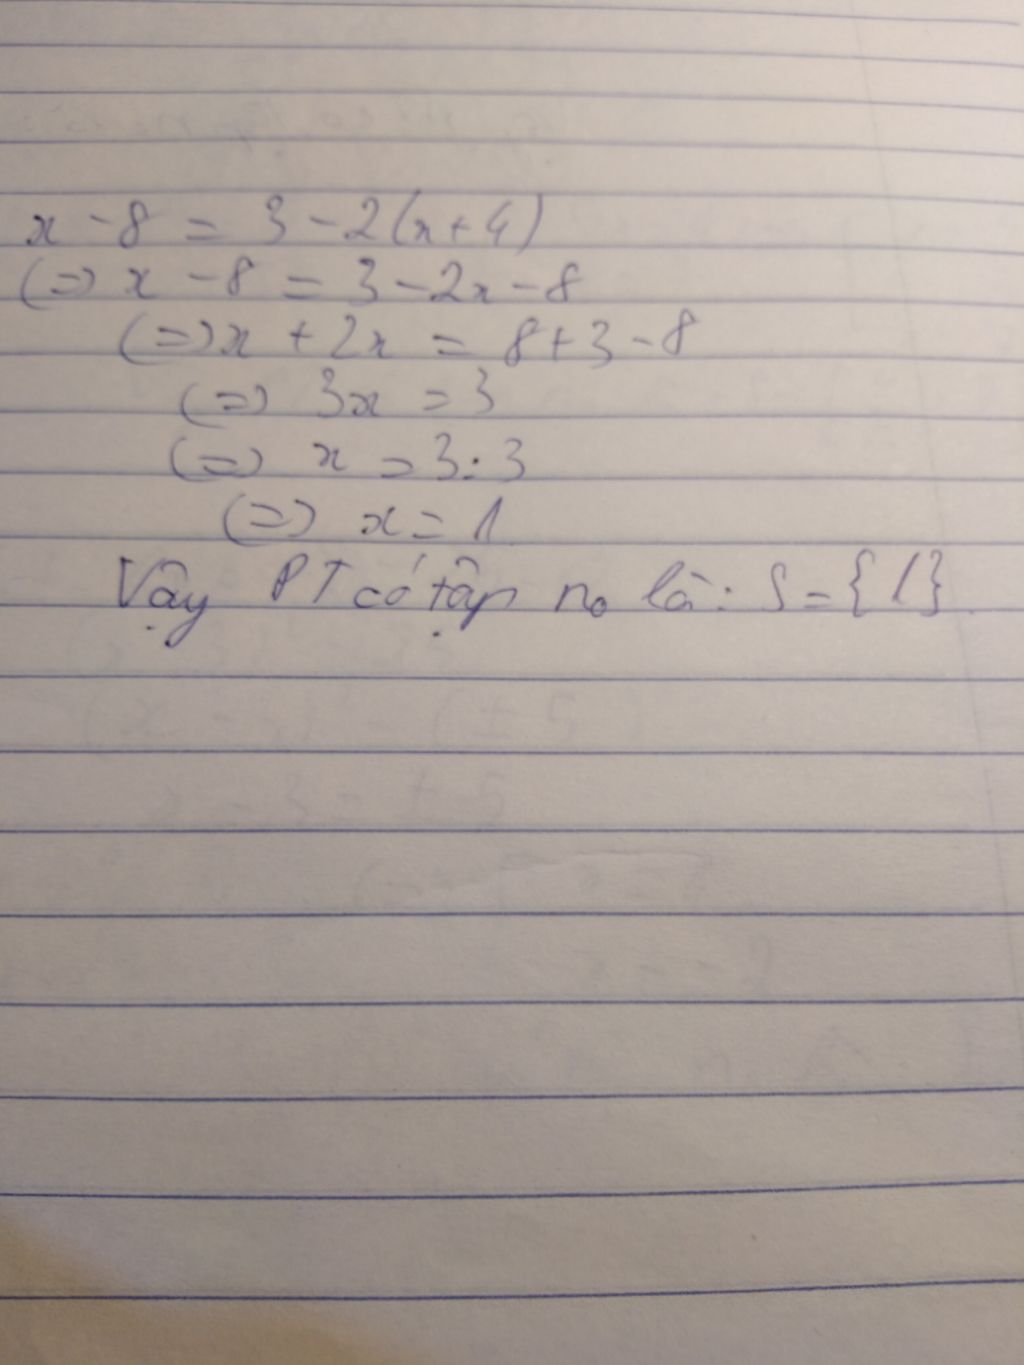 x - 8 = 3 - 2(x+4)
(=) x - 8 = 3 - 2x - 8
(=) x + 2x = 8 + 3 - 8
(=) 3x = 3
(=) x = 3 : 3
(=) x = 1
Vậy PT có tập no là: S = {1}